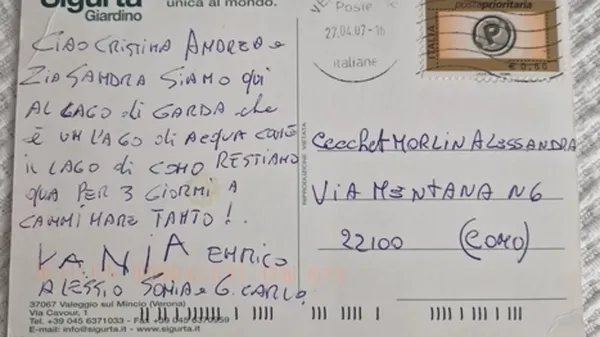 Sigurtà
Giardino
unica al mondo.
CIAO CRISTINA ANDREA e
ZIA SANDRA SIAMO QUI
AL LAGO di GARDA che
è UN LAGO di ACQUA COME
il LAGO di COMO RESTIAMO
QUA PER 3 GIORNI A
CAMMINARE TANTO!
VANJA ENRICO
ALESSIO SONIA e G. CARLO
37067 Valeggio sul Mincio (Verona)
Via Cavour, 1
Tel. +39 045 6371033 - Fax +39 045 6370959
E-mail: info@sigurta.it - www.sigurta.it
RIPRODUZIONE VIETATA
Poste
27.04.07-16
Italiane
postaprioritaria
P
ITALIA
€ 0,60
CecchetMORLIN ALESSANDRA
VIA MENTANA N6
22100 (COMO)